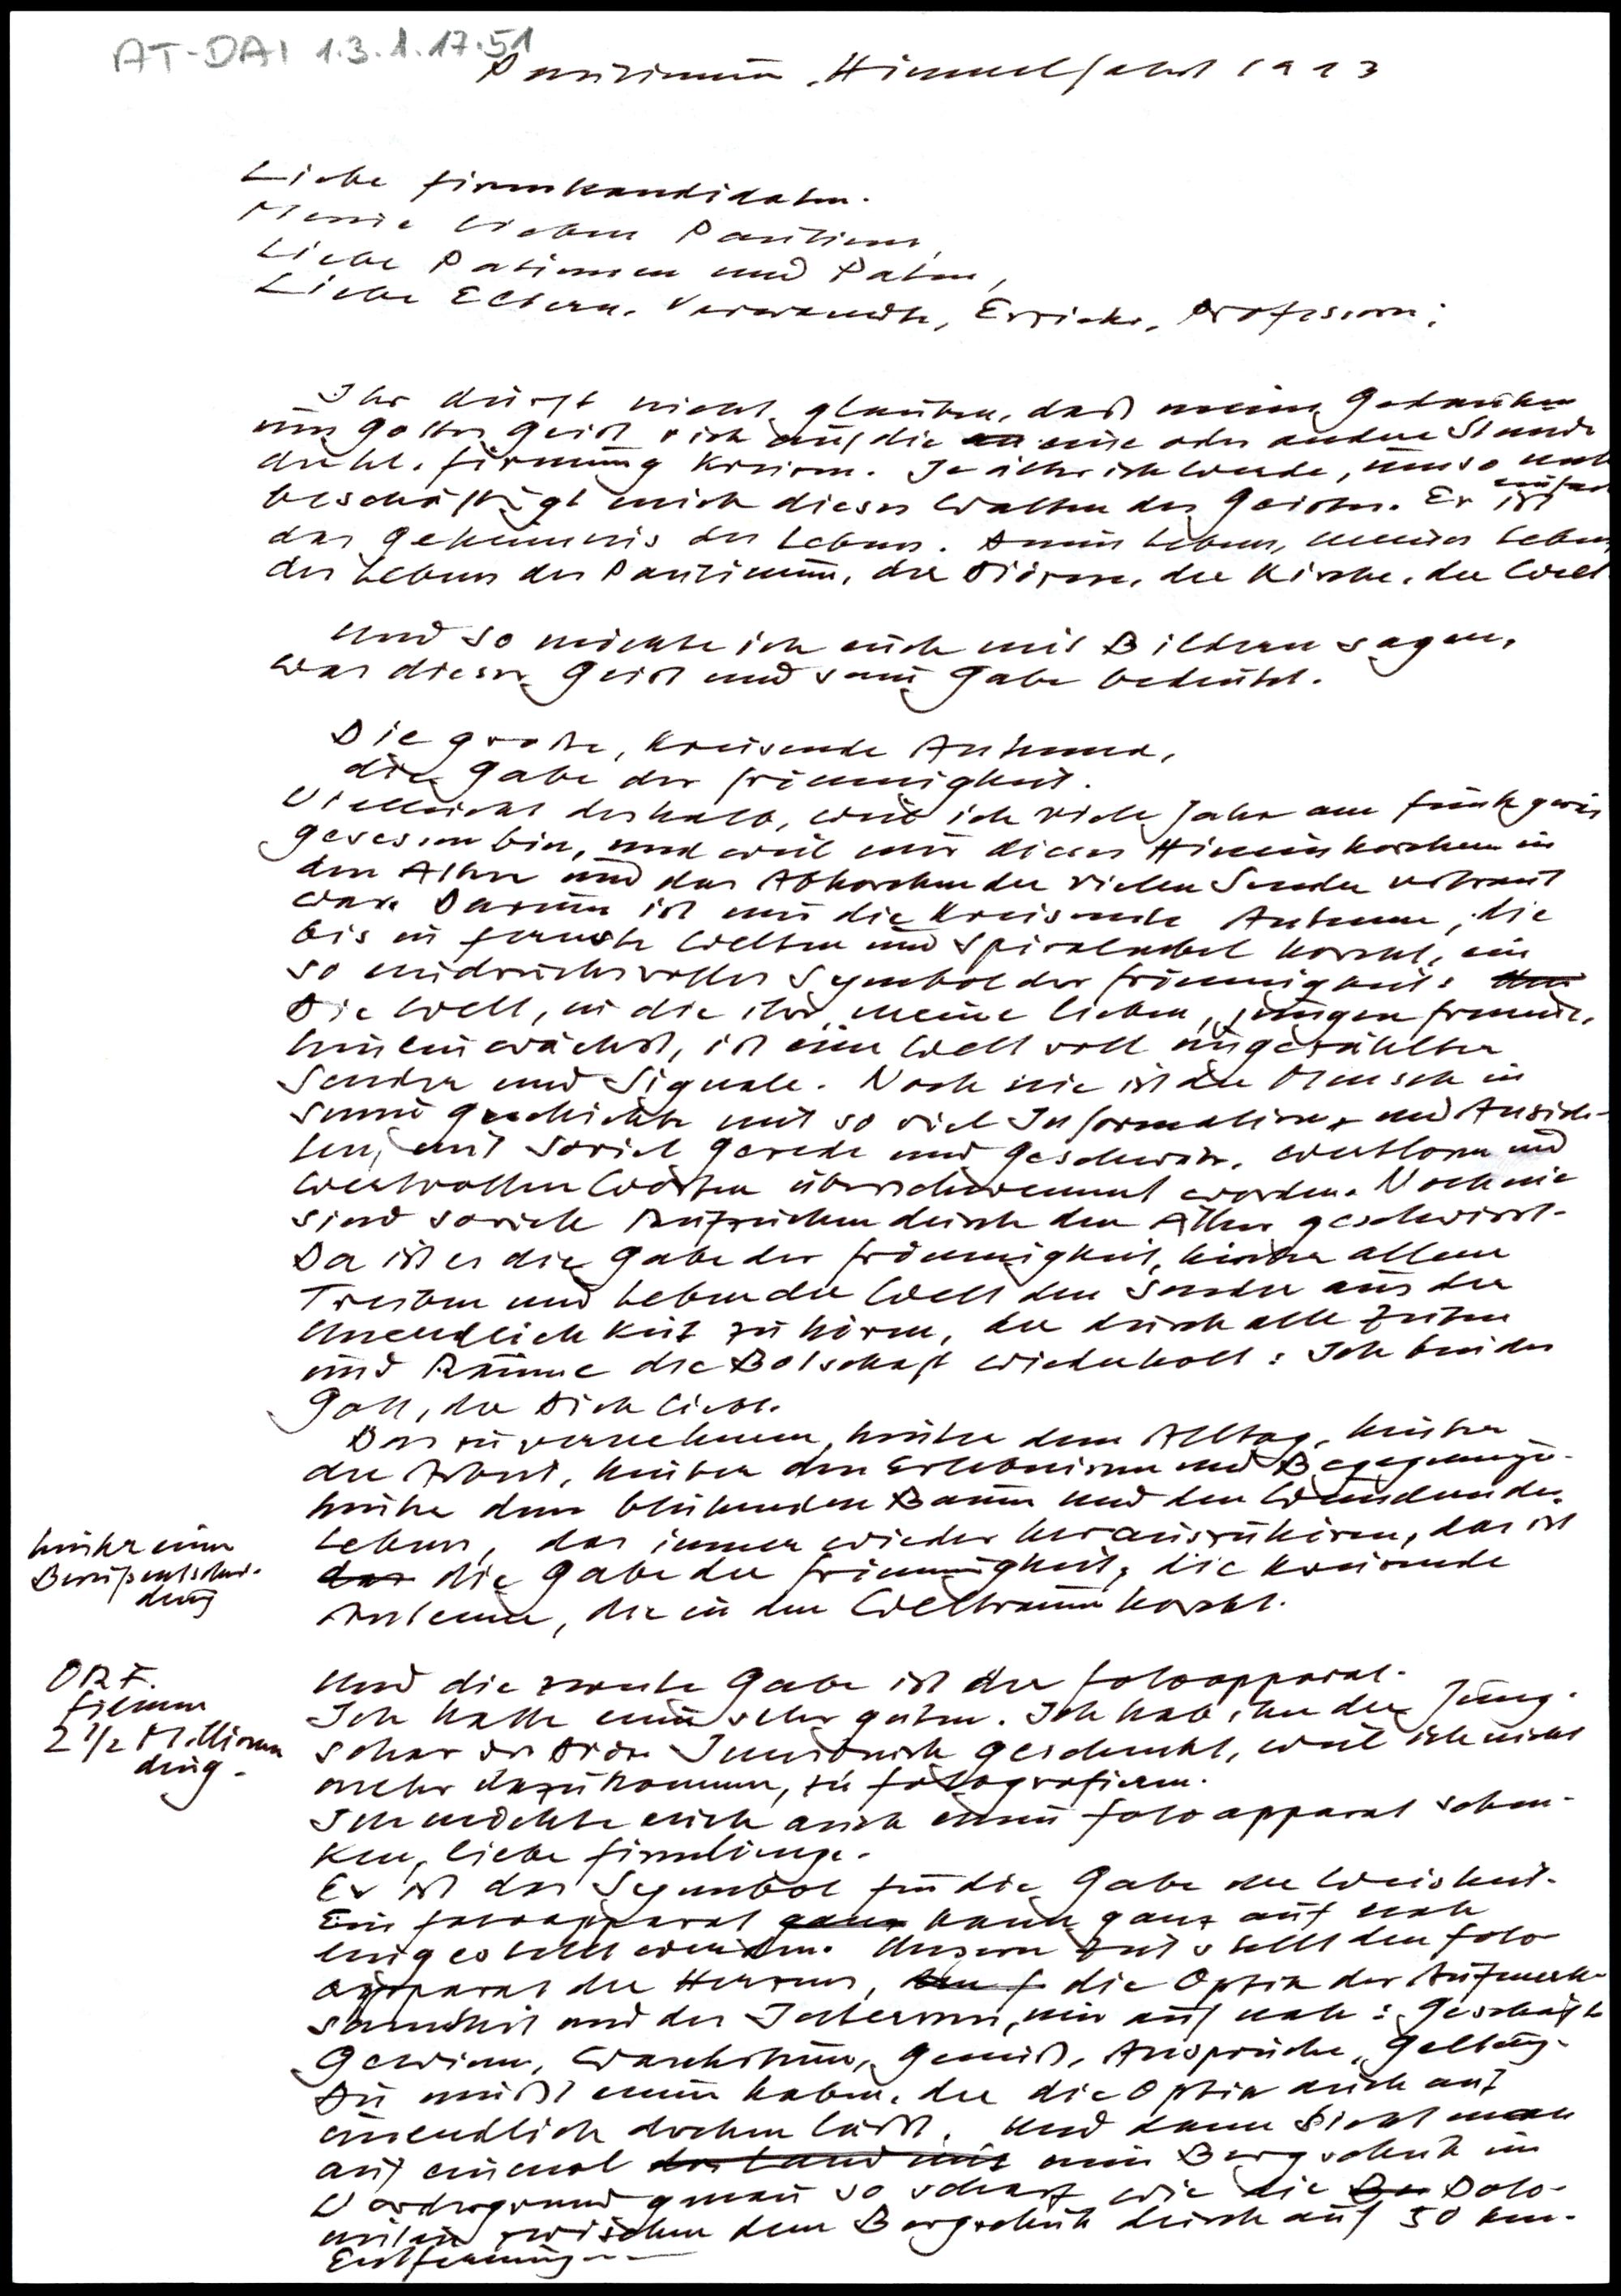 AT-DAI 1.3.1.17.51
Paulinum, Himmelfahrt 1993
Liebe Firmkandidaten.
Meine lieben Pauliner,
Liebe Patinnen und Paten,
Liebe Eltern, Verwandte, Erzieher, Professoren;
Ihr dürft nicht glauben, daß meine Gedanken
um Gottes Geist sich auf die eine oder andere Stunde
der hl. Firmung kreisen. Je älter ich werde, umso mehr
beschäftigt mich dieses Walten des Geistes. Er ist einfach
das Geheimnis des Lebens. Deines Lebens, meines Lebens
des Lebens des Paulinum, der Diözese, der Kirche, der Welt
Und so möchte ich euch mit Bildern sagen,
was dieser Geist und seine Gabe bedeutet.
Die große, kreisende Antenne,
die Gabe der Frömmigkeit.
Vielleicht deshalb, weil ich viele Jahre am Funkgerät
gesessen bin, und weil mir dieses Hineinhorchen in
den Äther und das Abhorchen der vielen Sender vertraut
war. Darum ist mir die kreisende Antenne, die
bis in fernste Welten und Spiralnebel horcht, ein
so eindrucksvolles Symbol der Frömmigkeit:
Die Welt, in die ihr, meine lieben, jungen Freunde,
hineinwächst, ist eine Welt voll ungezählter
Sender und Signale. Noch nie ist der Mensch in
seiner Geschichte mit so viel Information und Ansich-
ten, mit soviel Gerede und Geschwätz, wertlosen und
wertvollen Worten überschwemmt worden. Noch nie
sind soviele durch den Äther geschwirrt.
Da ist es die Gabe der Frömmigkeit, hinter allem
Treiben und Leben der Welt den Sender aus der
Unendlichkeit zu hören, der durch alle Zeiten
und Räume die Botschaft wiederholt: Ich bin der
Gott, der Dich liebt.
Das zu vernehmen, hinter dem Alltag, hinter
der Arbeit, hinter den Erlebnissen und Begegnungen
hinter dem blühenden Baum und den Wundern des
hinter einer
Berufsentschei-
dung
Lebens, das immer wieder herauszuhören, das ist
das die Gabe der Frömmigkeit, die kreisende
Antenne, die in den Weltraum horcht.
ORF.
Filmen
2 1/2 Millionen
ding.
Und die zweite Gabe ist der Fotoapparat.
Ich hatte einen sehr guten. Ich hab ihn der Jung-
schar der Diöz. Innsbruck geschenkt, weil ich nicht
mehr dazu komme, zu fotografieren.
Ich möchte euch auch einen Fotoapparat schen-
ken, liebe Firmlinge.
Er ist das Symbol für die Gabe der Weisheit.
Ein Fotoapparat ganz kann ganz auf nah
eingestellt werden. Unsere Zeit stellt den Foto
apparat des Herzens, die Optik der Aufmerk-
samkeit und des Interesses, nur auf nah: Geschäft
Gewinn, Wachstum, Genuß, Ansprüche, Geltung.
Du mußt einen haben, der die Optik auch auf
unendlich drehen läßt. Und dann sieht man
auf einmal das Land mit mein Bergschuh im
Vordergrund genau so scharf wie die Do Dolo-
miten zwischen dem Bergschuh durch auf 50 km.
Entfernung--